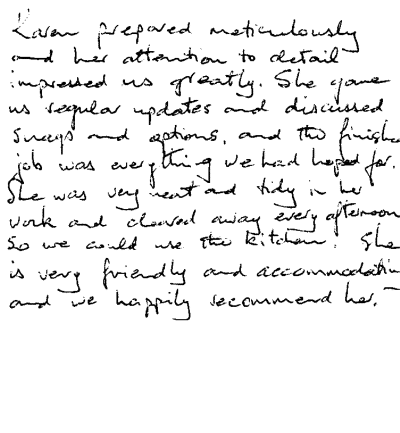 Karen prepared meticulously
and her attention to detail
impressed us greatly. She gave
us regular updates and discussed
snags and options, and the finished
job was everything we had hoped for.
She was very neat and tidy in her
work and cleared away every afternoon
so we could use the kitchen. She
is very friendly and accommodating
and we happily recommend her.